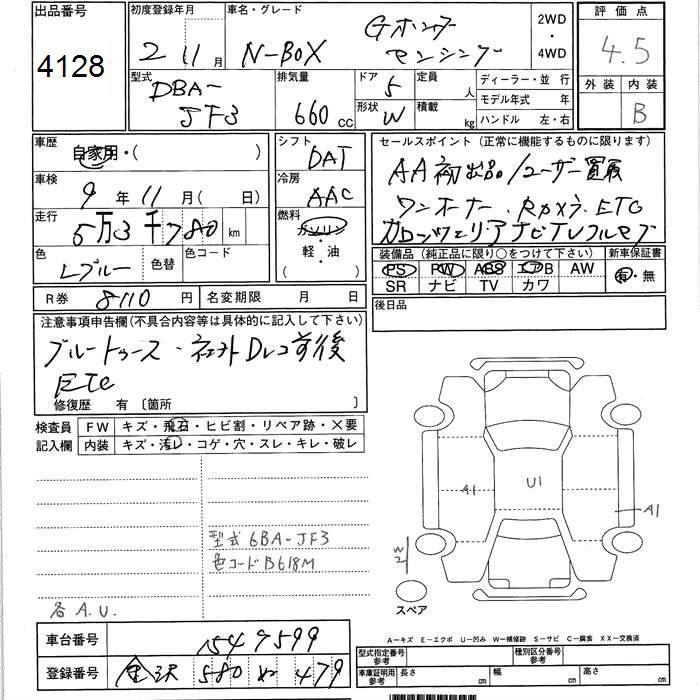 出品番号 初度登録年月 車名・グレード 2WD・4WD 評価点
4128 2 11月 N-BOX Gホンダセンシング 4.5
型式 DBA-JF3 排気量 660cc ドア 5 定員 人 ディーラー・並行 外装 内装 B
形状 W 積載 kg モデル年式 年
ハンドル 左・右
車歴 自家用・( ) シフト DAT セールスポイント(正常に機能するものに限ります)
車検 9年11月( 日) 冷房 AAC AA初出品/ユーザー買取
走行 5万3千780km 燃料 ガソリン・軽・油 ワンオーナー、Rカメラ、ETC
色 Lブルー 色替 色コード カロッツェリアナビTVフルセグ
装備品(純正品に限り○をつけて下さい) 新車保証書
PS PW ABS エアB AW 有・無
SR ナビ TV カワ
R券 8110円 名変期限 月 日 後日品
注意事項申告欄(不具合内容等は具体的に記入して下さい)
ブルートゥース・ネクストDレコ前後
ETC
修復歴 有〔箇所 〕
検査員記入欄 FW キズ・飛石・ヒビ割・リペア跡・×要
内装 キズ・汚レ・コゲ・穴・スレ・キレ・破レ
A1 U1 A1
型式 6BA-JF3
色コード B618M
W2
スペア
各A.U.
A−キズ E−エクボ U−凹み W−補修跡 S−サビ C−腐食 XX−交換済
車台番号 1549599
型式指定番号 参考 種別区分番号 参考
登録番号 金沢 580 479
車庫証明用 参考 長さ cm 幅 cm 高さ cm